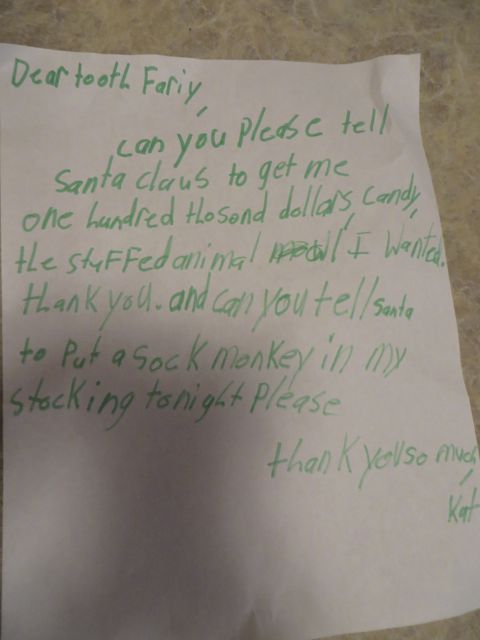 Dear tooth Fariy,
can you please tell
Santa claus to get me
one hundred thosond dollars, candy,
the stuffed animal I wanted.
thank you. and can you tell Santa
to put a sock monkey in my
stocking tonight please
thank you so much,
Kat